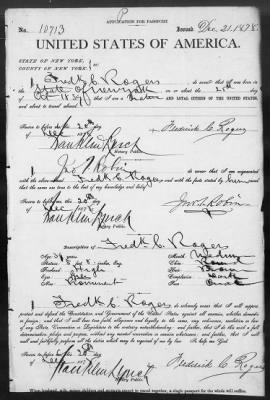 APPLICATION FOR PASSPORT
No. 10713 Issued Dec. 21. 1878.
UNITED STATES OF AMERICA.
STATE OF NEW YORK,
COUNTY OF NEW YORK
I, Fredk C. Rogers do swear that I was born in
the State of on or about the day
of 1857; that I am a Native AND LOYAL CITIZEN OF THE UNITED STATES,
and about to travel abroad.
Sworn to before me, this 20th
day of Dec 1878 Frederick C. Rogers
Franklin Lynch
Notary Public.
I, do swear that I am acquainted
with the Fredk C. Rogers and with the facts stated by him and
that the same are true to the best of my knowledge and belief.
Sworn to before me, this 20th
day of Dec 1878
Franklin Lynch
Notary Public.
Description of Fredk C. Rogers
Age: 21 years Mouth: Medium
Stature: 5 feet 8 inches, Eng. Chin:
Forehead: High Hair: Brown
Eyes: Complexion: Dark
Nose: Prominent Face:
I, Fredk C. Rogers do solemnly swear that I will support,
protect and defend the Constitution and Government of the United States against all enemies, whether domestic or
foreign; and that I will bear true faith, allegiance and loyalty to the same, any ordinance, resolution or law
of any State Convention or Legislature to the contrary notwithstanding; and further, that I do this with a full
determination, pledge and purpose, without any mental reservation or evasion whatsoever; and further, that I will
well and faithfully perform all the duties which may be required of me by law. So help me God.
Sworn to before me, this 20th
day of Dec 1878 Frederick C. Rogers
Franklin Lynch
Notary Public.
When husband, wife, minor children and servants expect to travel together, a single passport for the whole will suffice.